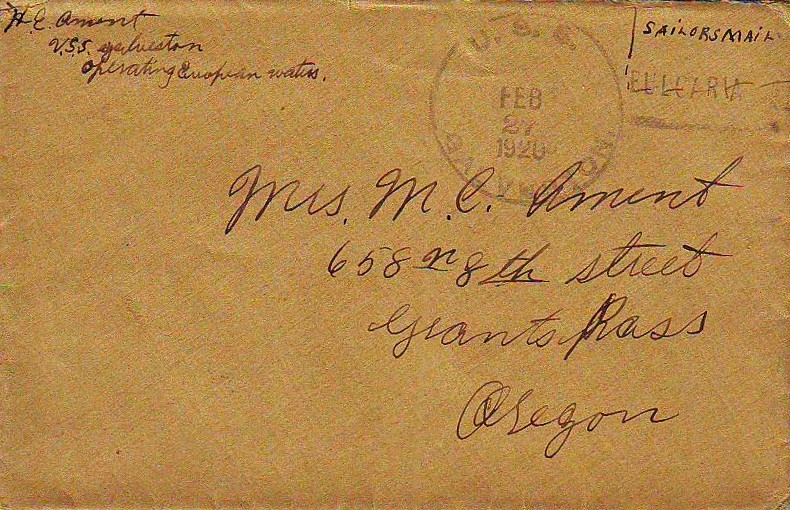 H. E. Ament
U.S.S. galveston
operating European waters.
SAILORS MAIL
U. S. S.
FEB
27
1920
GALVESTON
BULGARIA
Mrs. M. C. Ament
658 n 8th street
Grants Pass
Oregon